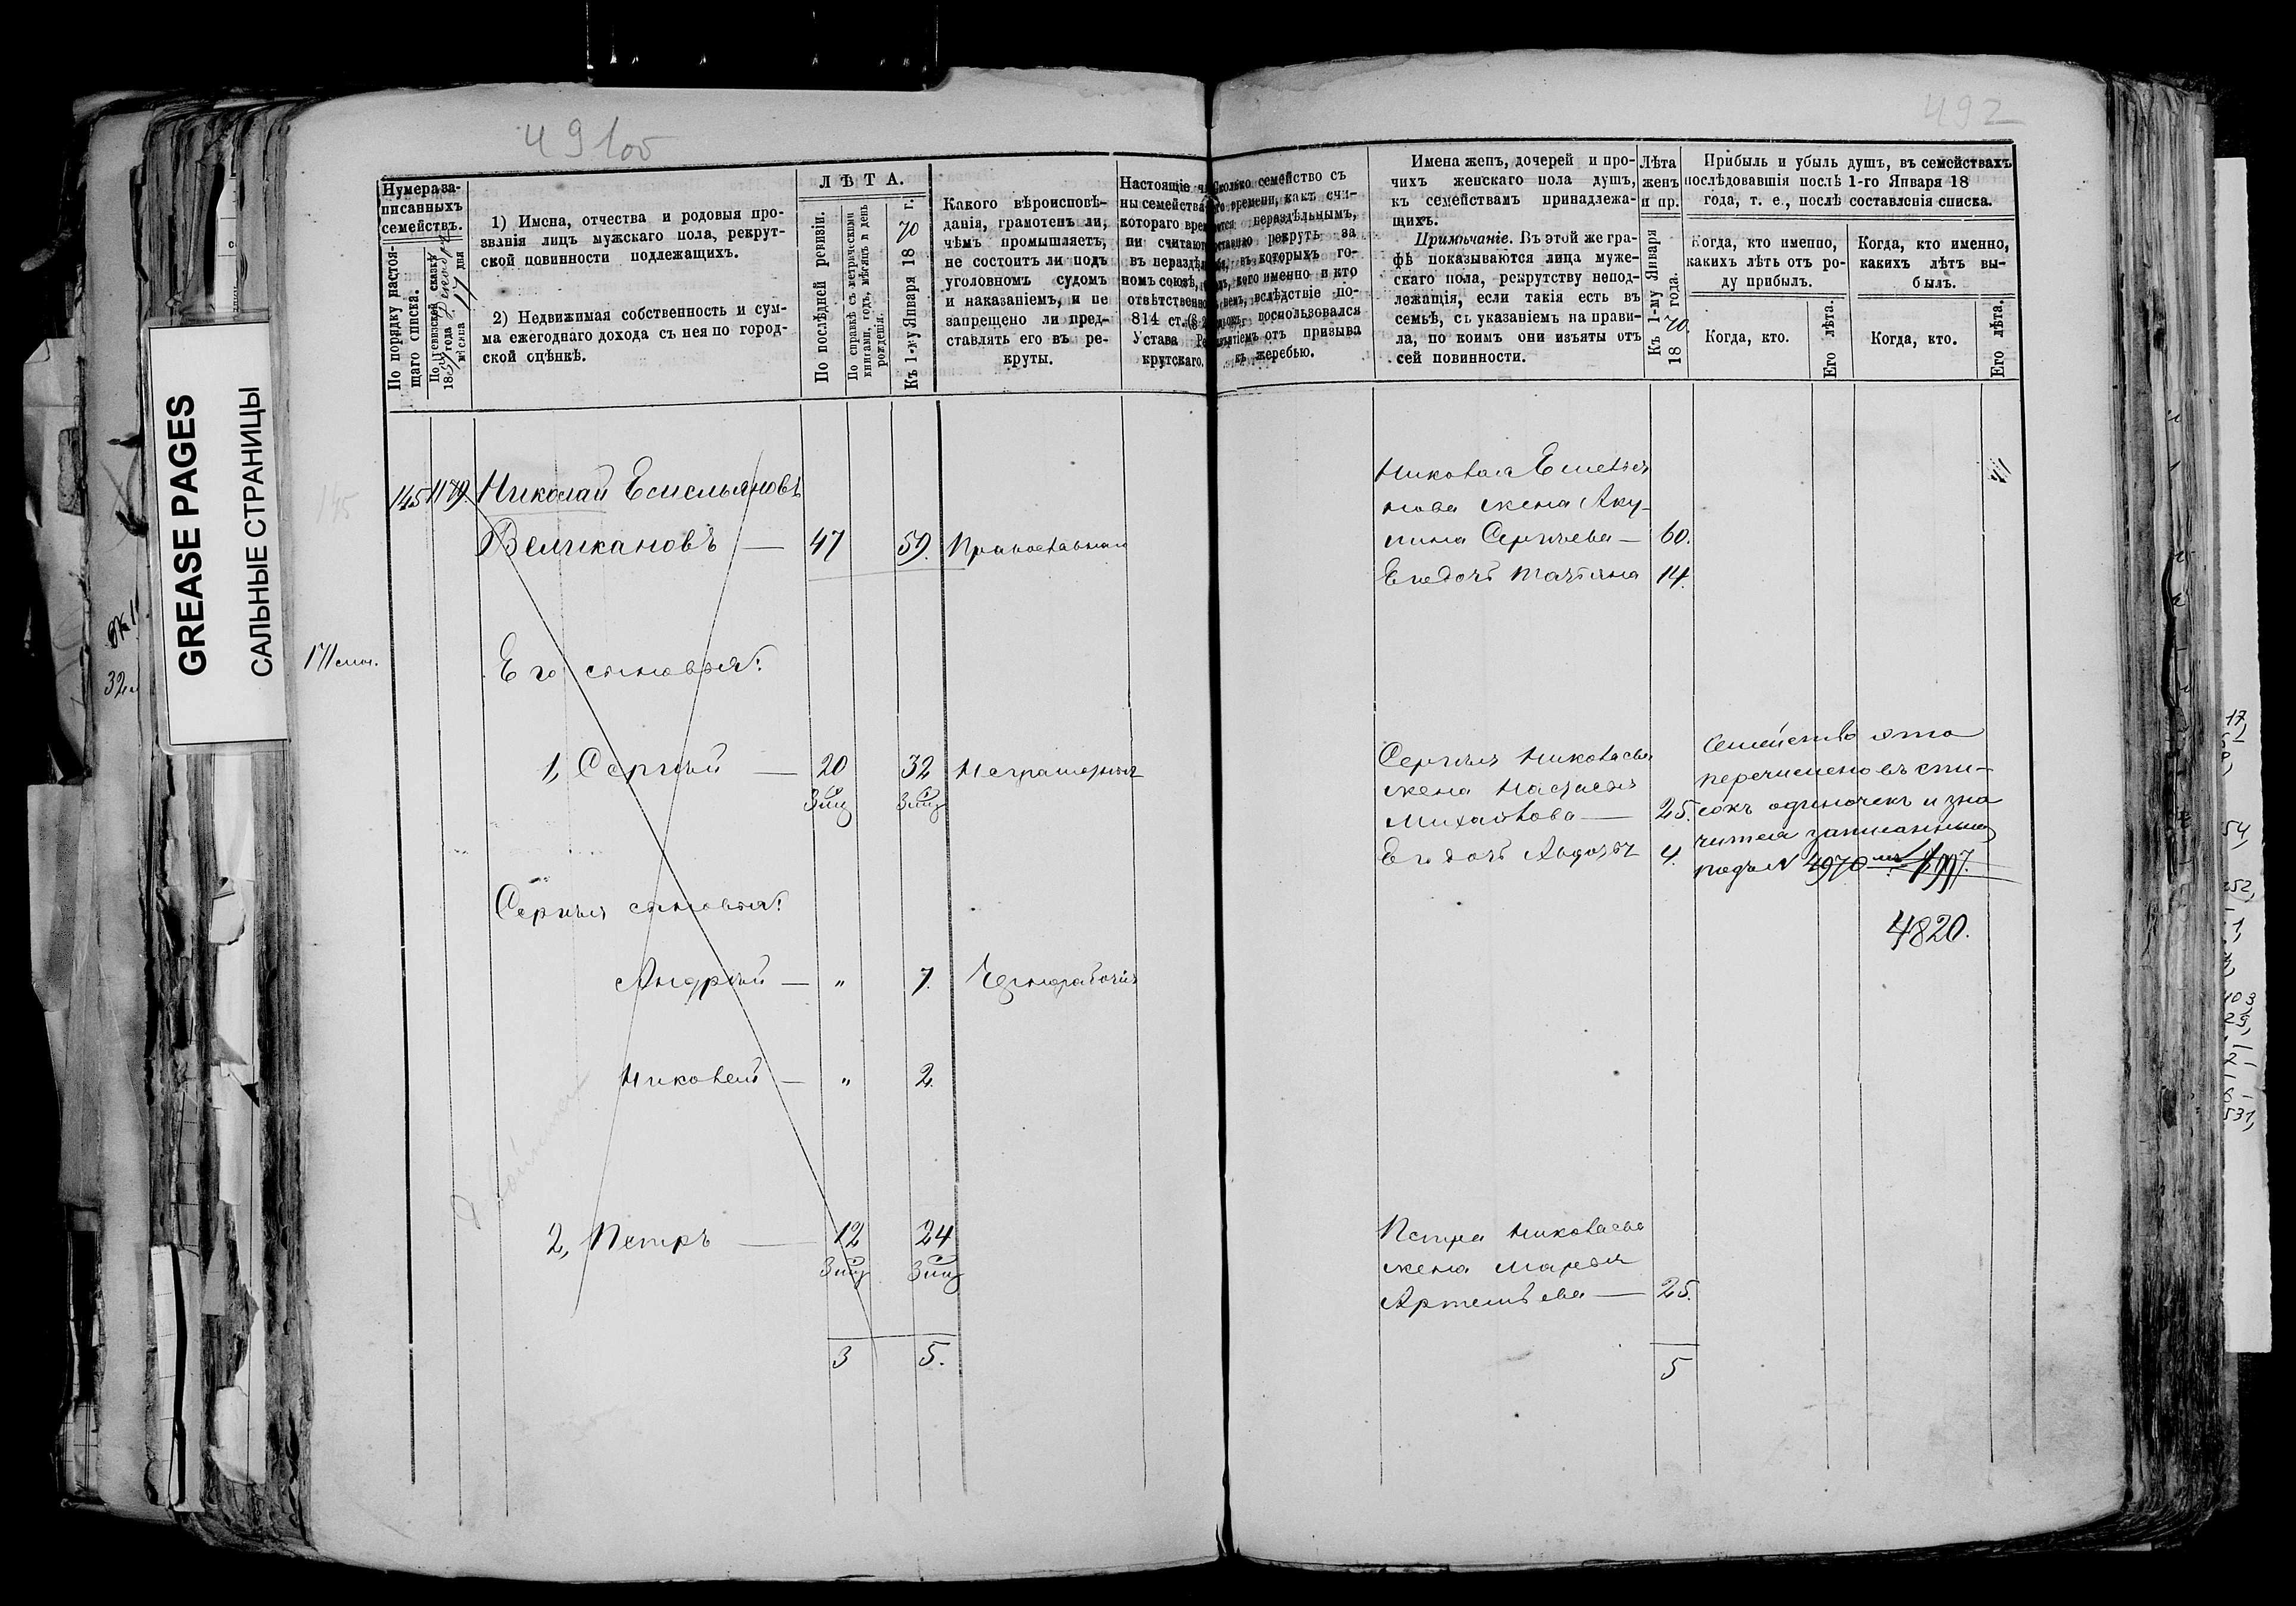 491об
492
GREASE PAGES
САЛЬНЫЕ СТРАНИЦЫ
Нумера за-
писанныхъ
семействъ.
По порядку настоя-
щаго списка.
По ревизской сказкѣ
1857 года
мѣсяца 17 дня
1) Имена, отчества и родовыя про-
званія лицъ мужскаго пола, рекрут-
ской повинности подлежащихъ.
2) Недвижимая собственность и сум-
ма ежегоднаго дохода съ нея по город-
ской оцѣнкѣ.
ЛѢТА.
По послѣдней ревизіи.
По справкѣ съ метрическими
книгами, годъ, мѣсяцъ и день
рожденія.
Къ 1-му Января 1870 г.
Какого вѣроисповѣ-
данія, грамотенъ ли,
чѣмъ промышляетъ,
не состоитъ ли подъ
уголовномъ судомъ
и наказаніемъ, и не
запрещено ли пред-
ставлять его въ ре-
круты.
Настоящіе
ны семейства
котораго вре
ни считают
въ нераздѣ
номъ союзѣ,
отвѣтственно
814 ст.
Устава Ре
крутскаго.
Сколько семейство съ
времени, какъ счи-
нераздѣльнымъ,
рекрутъ за
въ которыхъ го-
кого именно и кто
вслѣдствіе по-
воспользовался
отъ призыва
къ жеребью.
Имена женъ, дочерей и про-
чихъ женскаго пола душъ,
къ семействамъ принадлежа-
щихъ.
Примѣчаніе. Въ этой же гра-
фѣ показываются лица муже-
скаго пола, рекрутству непод-
лежащія, если такія есть въ
семьѣ, съ указаніемъ на прави-
ла, по коимъ они изъяты отъ
сей повинности.
Лѣта
женъ
и пр.
Къ 1-му Января
1870 года.
Прибыль и убыль душъ, въ семействахъ
послѣдовавшія послѣ 1-го Января 18
года, т. е., послѣ составленія списка.
Когда, кто именно,
какихъ лѣтъ отъ ро-
ду прибылъ.
Когда, кто именно,
какихъ лѣтъ вы-
былъ.
Когда, кто.
Его лѣта.
Когда, кто.
Его лѣта.
145
145 1179. Николай Емельяновъ
Великановъ — 47 59. Православный
Его сыновья:
1, Сергѣй — 20 32 Неграмотный
Сергѣя сыновья:
Андрей — " 7. Чернорабочій
Николай — " 2.
2, Петръ — 12 24
3 5.
Николая Емелья
нова жена Аку-
лина Сергѣева — 60.
Его дочь Татьяна 14.
Сергѣя Николаева
жена Настасья
Михайлова — 25.
Его дочь Авдотья 4.
Семейство это
перечислено въ спи-
сокъ одиночекъ и зна
чится записаннымъ
подъ N 4970
4820.
Петра Николаева
жена Марья
Артемьева — 25.
5